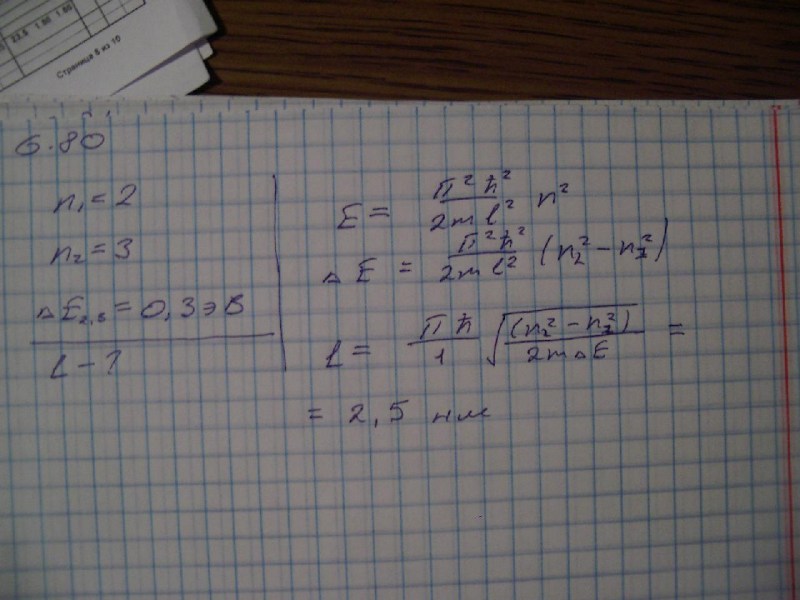 23.5 1.50 1.60
Страница 5 из 10
6.80
n₁ = 2
n₂ = 3
ΔE₂,₃ = 0,3 эВ
L - ?
E = π²ħ² / 2ml² n²
ΔE = π²ħ² / 2ml² (n₂² - n₁²)
L = πħ / 1 √((n₂² - n₁²) / 2mΔE) =
= 2,5 нм